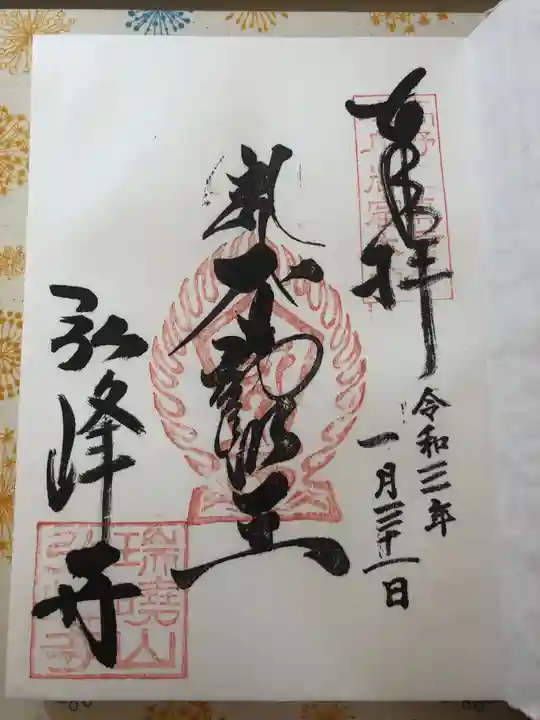 奉拝
令和三年
一月三十一日
不動明王
弘峰寺
瑞曉山
弘峰寺